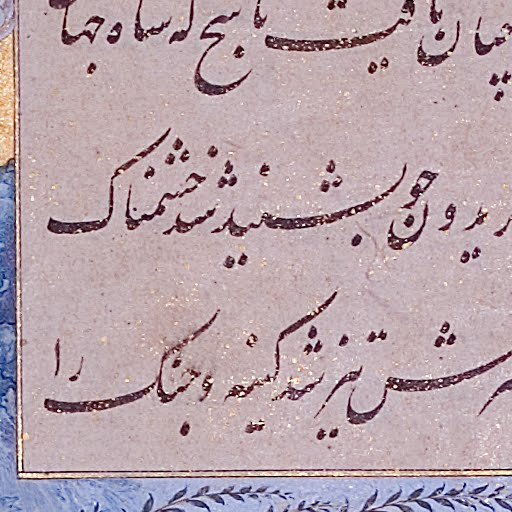 چنان یافت پاسخ که شاه جها
ریدون چو بشنید شد خشمناک
سرش تیز شد کینه و جنگ را